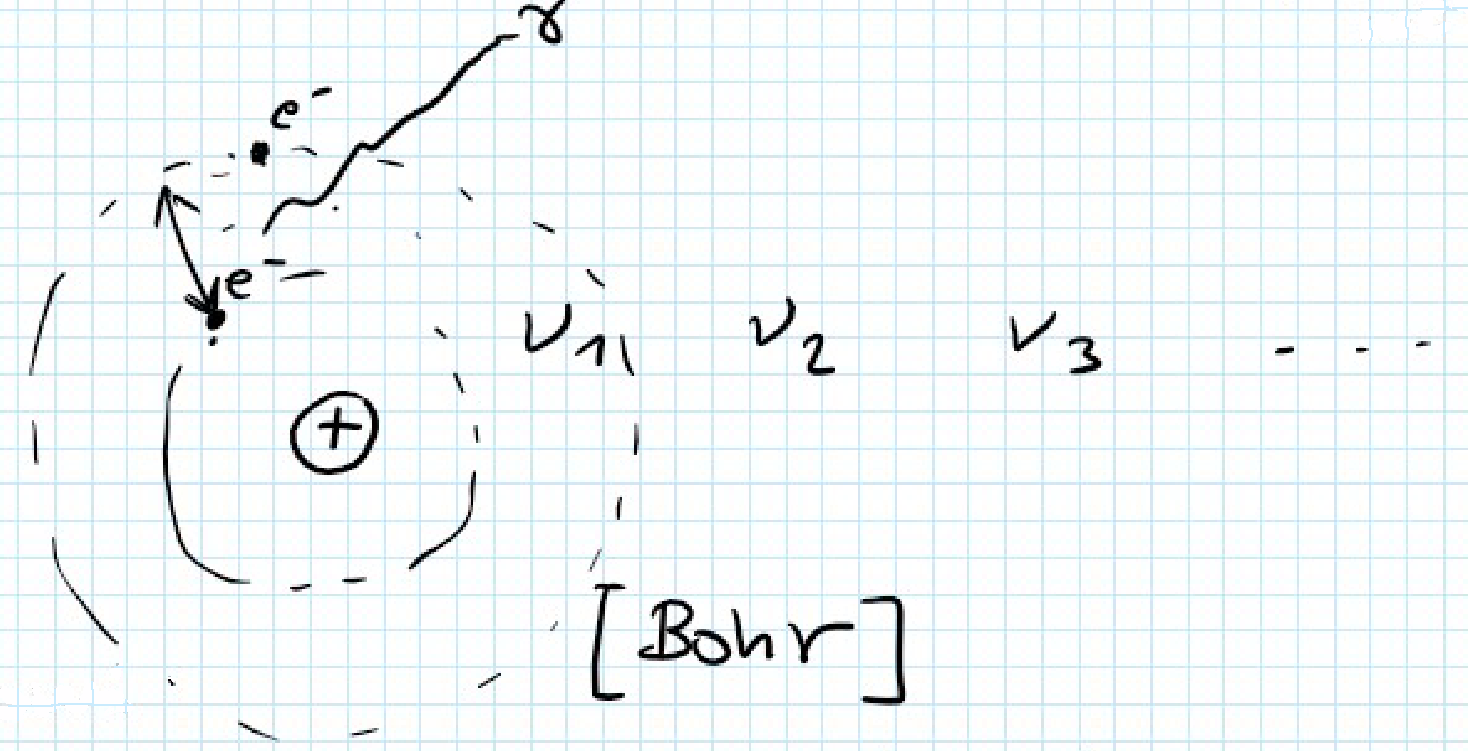 γ
e⁻
e⁻
+
ν₁ ν₂ ν₃ ---
[Bohr]